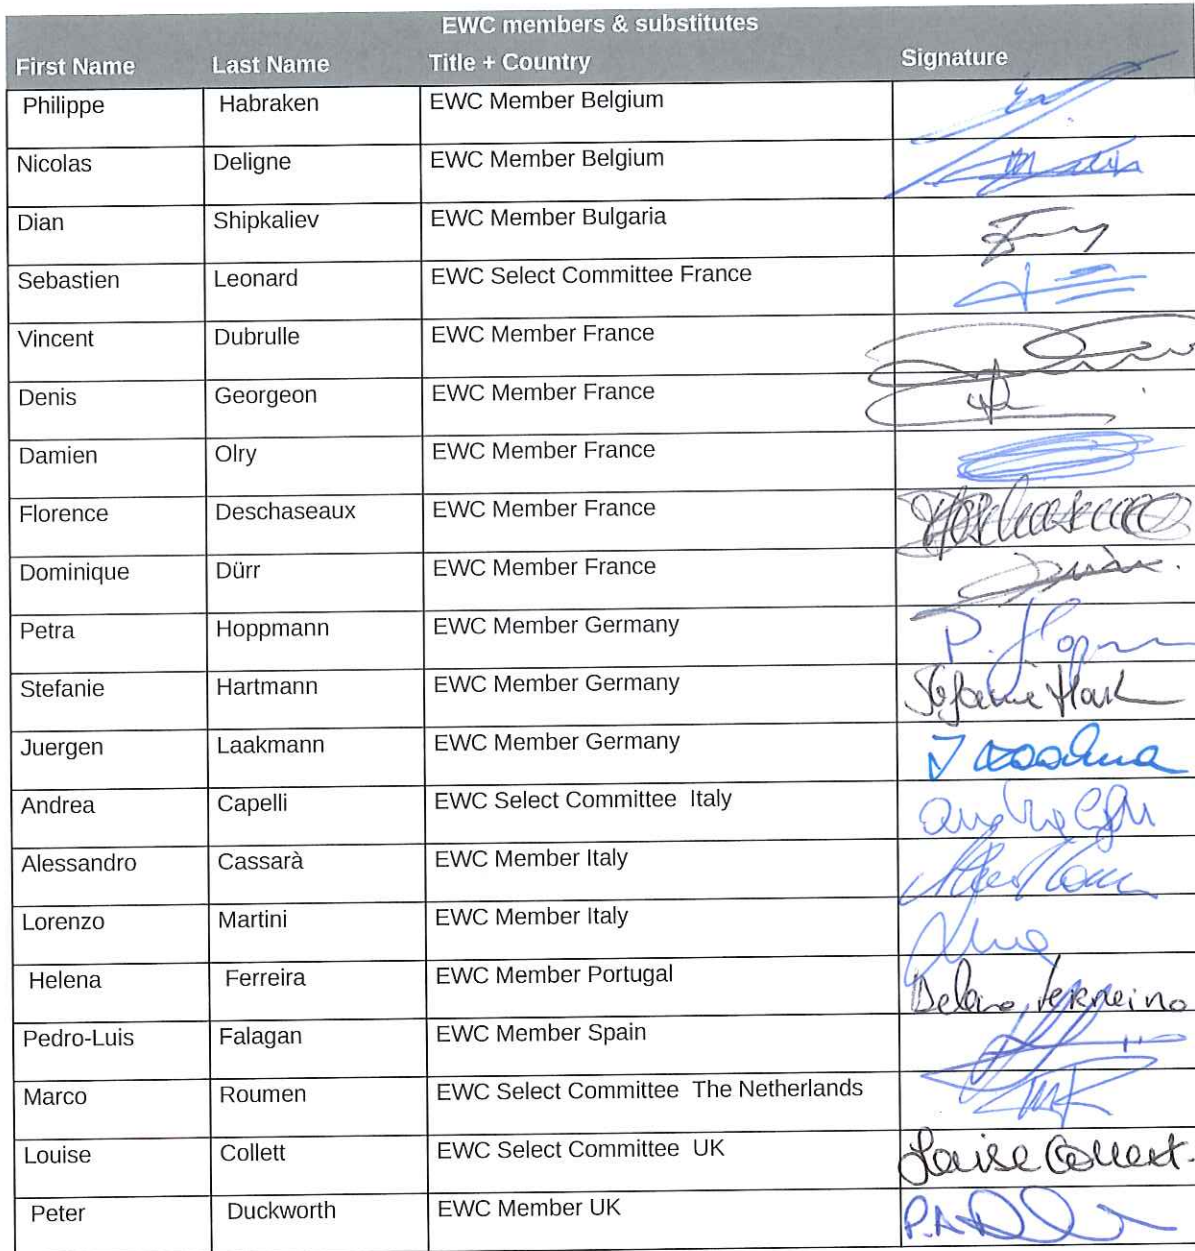 EWC members & substitutes
First Name Last Name Title + Country Signature
Philippe Habraken EWC Member Belgium
Nicolas Deligne EWC Member Belgium
Dian Shipkaliev EWC Member Bulgaria
Sebastien Leonard EWC Select Committee France
Vincent Dubrulle EWC Member France
Denis Georgeon EWC Member France
Damien Olry EWC Member France
Florence Deschaseaux EWC Member France
Dominique Dürr EWC Member France
Petra Hoppmann EWC Member Germany
Stefanie Hartmann EWC Member Germany
Juergen Laakmann EWC Member Germany
Andrea Capelli EWC Select Committee Italy
Alessandro Cassarà EWC Member Italy
Lorenzo Martini EWC Member Italy
Helena Ferreira EWC Member Portugal
Pedro-Luis Falagan EWC Member Spain
Marco Roumen EWC Select Committee The Netherlands
Louise Collett EWC Select Committee UK Louise Collett.
Peter Duckworth EWC Member UK